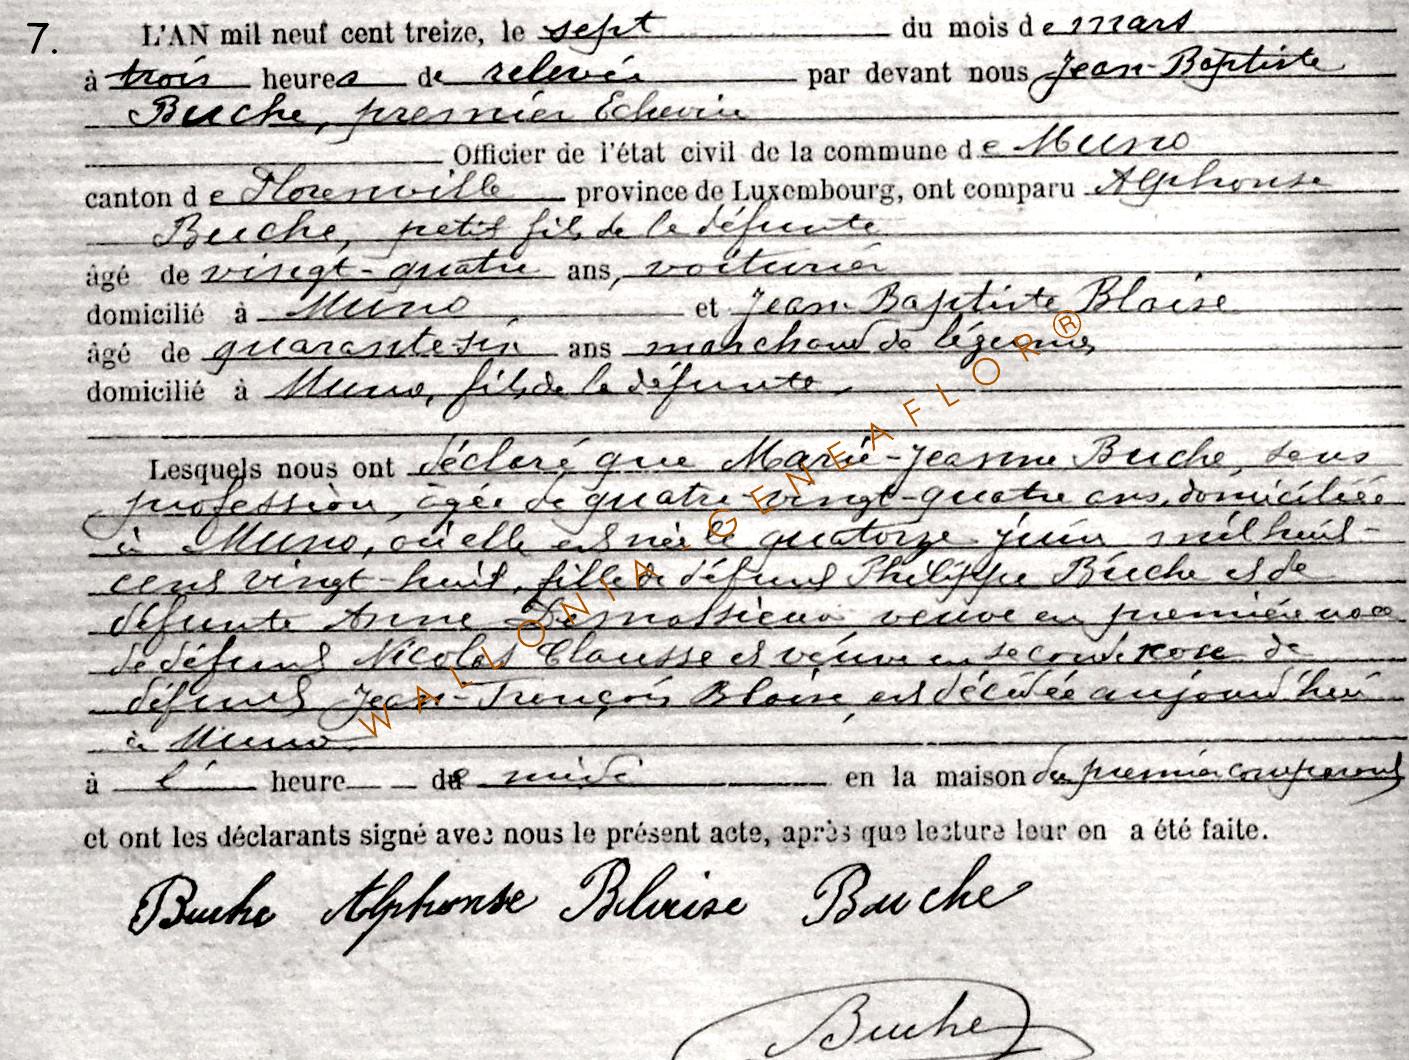 7. L'AN mil neuf cent treize, le sept du mois de mars
à trois heures de relevée par devant nous Jean-Baptiste
Buche, premier Echevin
Officier de l'état civil de la commune de Muno
canton de Florenville province de Luxembourg, ont comparu Alphonse
Buche, petit fils de la défunte
âgé de vingt-quatre ans, voiturier
domicilié à Muno et Jean-Baptiste Blaise
âgé de quarante-six ans marchand de légumes
domicilié à Muno, fils de la défunte,
Lesquels nous ont déclaré que Marie-Jeanne Buche, sans
profession, âgée de quatre-vingt-quatre ans, domiciliée
à Muno, où elle est née le quatorze juin mil huit-
cent vingt-huit, fille de défunt Philippe Buche et de
défunte Anne veuve en première noce
de défunt Nicolas Clausse et veuve en seconde noce de
défunt Jean-François Blaise, est décédée aujourd'hui
à Muno
à l' heure de midi en la maison du premier comparant
et ont les déclarants signé avec nous le présent acte, après que lecture leur en a été faite.
Buche Alphonse Blaise Buche
Buche
WALLONIA GENEAFLOR®